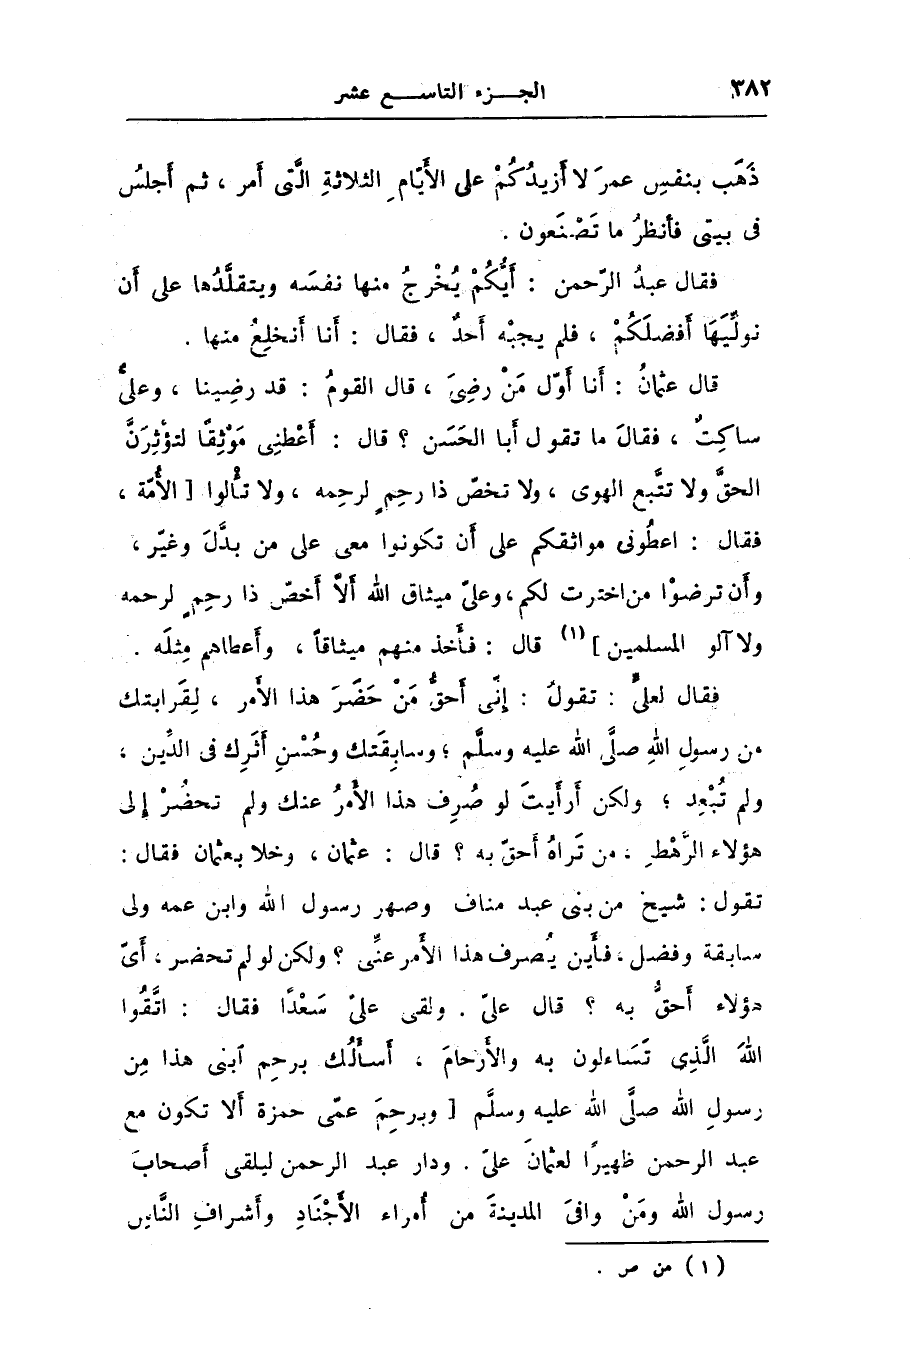 ٣٨٢
الجـــزء التاســـع عشر
ذَهَب بنفسِ عمرَ لا أَزيدُكُمْ على الأَيّامِ الثلاثةِ الَّتى أمر ، ثم أَجلسُ
فى بيتى فأَنظرُ ما تَصْنَعون .
فقال عبدُ الرّحمن : أَيُّكُمْ يُخْرجُ منها نفسَه ويتقلَّدُها على أَن
نولِّيَهَا أَفضلَكُمْ ، فلم يجبْه أَحدٌ ، فقال : أَنا أَنخلِعُ منها .
قال عثمانُ : أَنا أَوّل مَنْ رضِىَ ، قال القومُ : قد رضِينا ، وعلىٌّ
ساكِتٌ ، فقالَ ما تقول أَبا الحَسَن ؟ قال : أَعْطنِى مَوْثِقًا لتؤْثِرَنَّ
الحقَّ ولا تتَّبع الهوى ، ولا تخصّ ذا رحِمٍ لرحِمه ، ولا تأْلوا [ الأُمّة ،
فقال : اعطُونى مواثقكم على أَن تكونوا معى على من بدَّلَ وغيّر ،
وأَن ترضوْا من اخترت لكم ، وعلىّ ميثاق الله أَلاَّ أَخصّ ذا رحِمٍ لرحمه
ولا آلو المسلمين ] (١) قال : فأَخذ منهم ميثاقاً ، وأَعطاهم مِثلَه .
فقال لعلىٍّ : تقولُ : إِنِّى أَحقُّ مَنْ حَضَرَ هذا الأَمر ، لِقَرابتك
من رسولِ اللهِ صلَّى الله عليه وسلَّم ؛ وسابِقَتك وحُسْنِ أَثَرِك فى الدِّين ،
ولم تُبْعِد ؛ ولكن أَرأَيتَ لو صُرِف هذا الأَمرُ عنك ولم تحضُرْ إِلى
هؤلاء الرَّهْطِ ، من تَراهُ أَحقّ به ؟ قال : عثمان ، وخلا بعثمان فقال :
تقول : شيخ من بنى عبد مناف وصهر رسول الله وابن عمه ولى
سابقة وفضل ، فأَين يُصرف هذا الأَمر عنِّى ؟ ولكن لو لم تحضر ، أَىّ
هؤلاء أَحقُّ به ؟ قال علىّ . ولقى علىّ سَعْدًا فقال : اتَّقُوا
اللهَ الَّذِى تَسَاءلون به والأَرحامَ ، أَسأَلُك برحِم آبنى هذا مِن
رسولِ الله صلَّى الله عليه وسلَّم [ وبرحِمَ عمّى حمزة أَلا تكون مع
عبد الرحمن ظهيرًا لعثمانَ علىّ . ودار عبد الرحمن ليلقى أَصحابَ
رسول الله ومَنْ وافىَ المدينةَ من أُمراء الأَجْنَادِ وأَشرافِ النَّاسِ
(١) من ص .